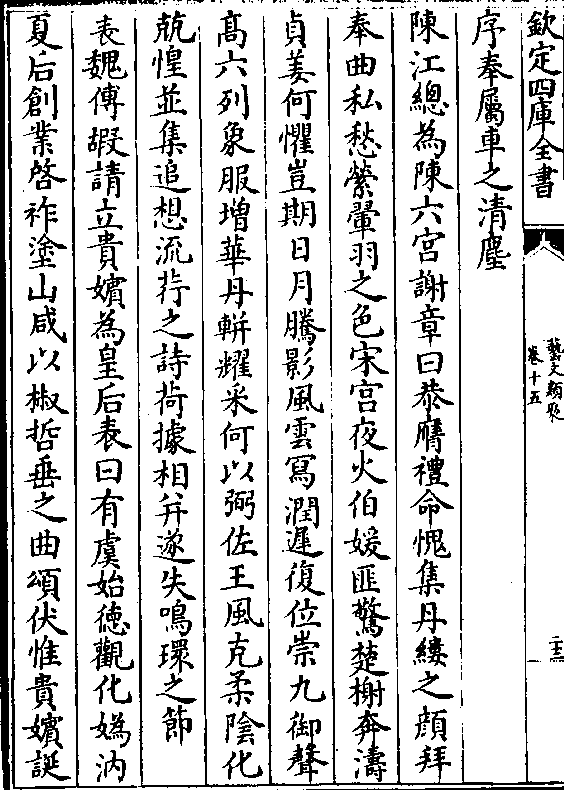 欽定四庫全書
藝文類聚
卷十五
二十三
序奉屬車之清塵
陳江總為陳六宮謝章曰恭膺禮命愧集丹縷之顔拜
奉曲私愁縈翬羽之色宋宫夜火伯媛匪驚楚榭奔濤
貞姜何懼豈期日月騰影風雲寫潤遲復位崇九御聲
髙六列象服増華丹軿耀采何以弼佐王風克柔陰化
兢惶並集追想流荇之詩荷據相并遂失鳴環之節
表魏傅嘏請立貴嬪為皇后表曰有虞始徳觀化媯汭
夏后創業啓祚塗山咸以椒哲垂之曲頌伏惟貴嬪誕